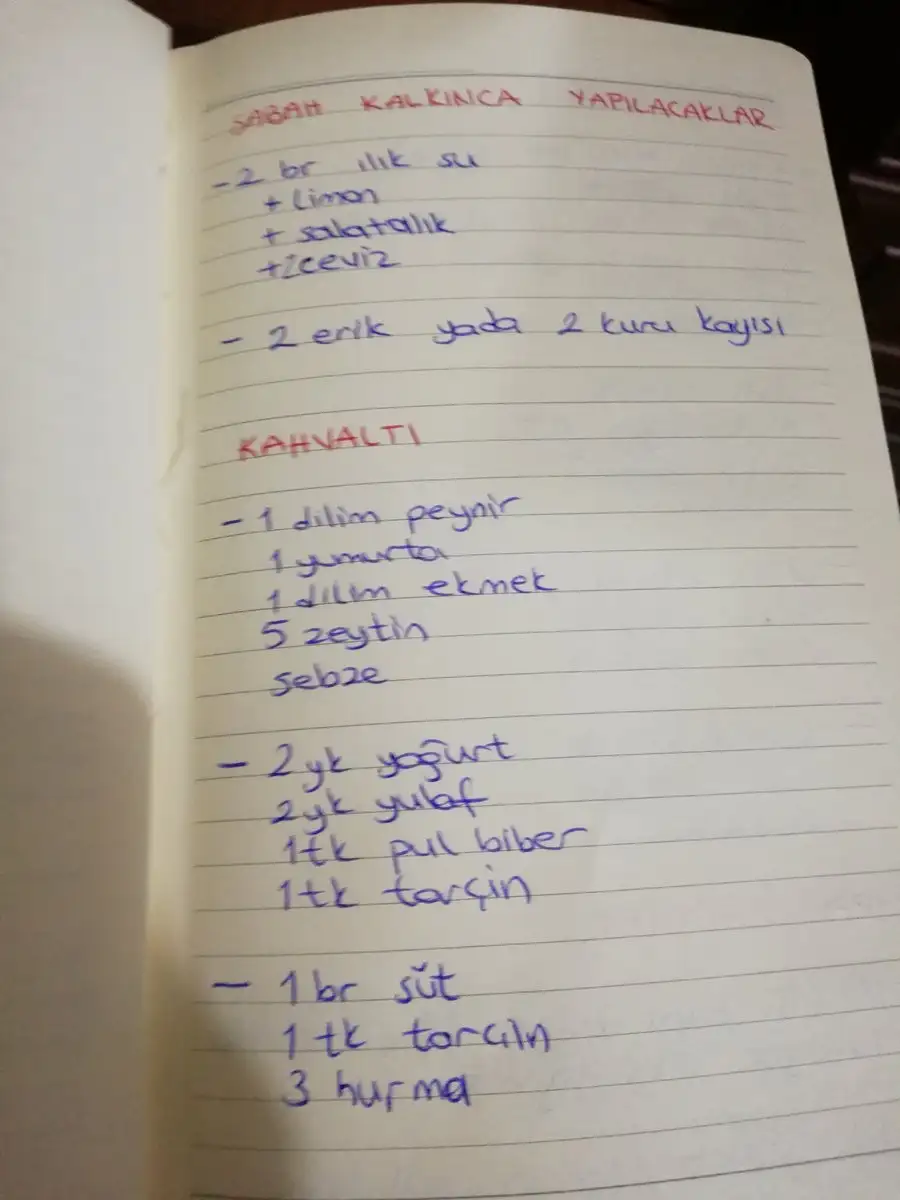 SABAH KALKINCA YAPILACAKLAR
- 2 br ılık su
+ limon
+ salatalık
+ 2 ceviz
- 2 erik yada 2 kuru kayısı
KAHVALTI
- 1 dilim peynir
1 yumurta
1 dilim ekmek
5 zeytin
sebze
- 2 yk yoğurt
2 yk yulaf
1 tk pul biber
1 tk tarçin
- 1 br süt
1 tk tarçin
3 hurma